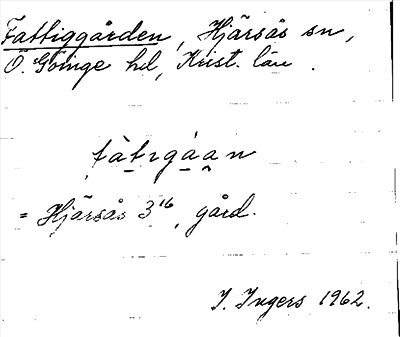 Fattiggården, Hjärsås sn,
Ö. Göinge hd, Krist. län.
fàtıgåan
= Hjärsås 3¹⁶, gård.
I. Ingers 1962.